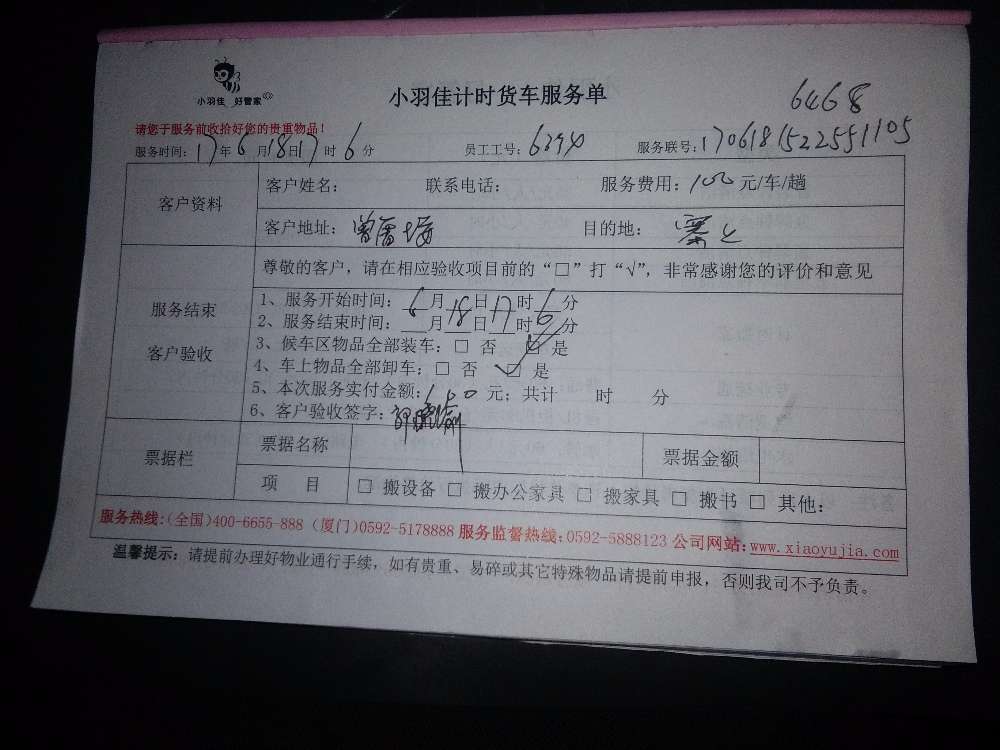 小羽佳 好管家
小羽佳计时货车服务单
6468
请您于服务前收拾好您的贵重物品！
服务时间：17年6月18日17时6分 员工工号：6394 服务联号：1706181522551105
客户资料
客户姓名： 联系电话： 服务费用：100元/车/趟
客户地址：曾厝垵 目的地：寨上
服务结束
客户验收
尊敬的客户，请在相应验收项目前的“□”打“√”，非常感谢您的评价和意见
1、服务开始时间：6月18日17时6分
2、服务结束时间：___月___日___时___分
3、候车区物品全部装车：□ 否 ☑ 是
4、车上物品全部卸车：□ 否 ☑ 是
5、本次服务实付金额：100元；共计 时 分
6、客户验收签字：
票据栏
票据名称 票据金额
项 目 □ 搬设备 □ 搬办公家具 □ 搬家具 □ 搬书 □ 其他：
服务热线：(全国)400-6655-888 (厦门)0592-5178888 服务监督热线：0592-5888123 公司网站：www.xiaoyujia.com
温馨提示：请提前办理好物业通行手续，如有贵重、易碎或其它特殊物品请提前申报，否则我司不予负责。